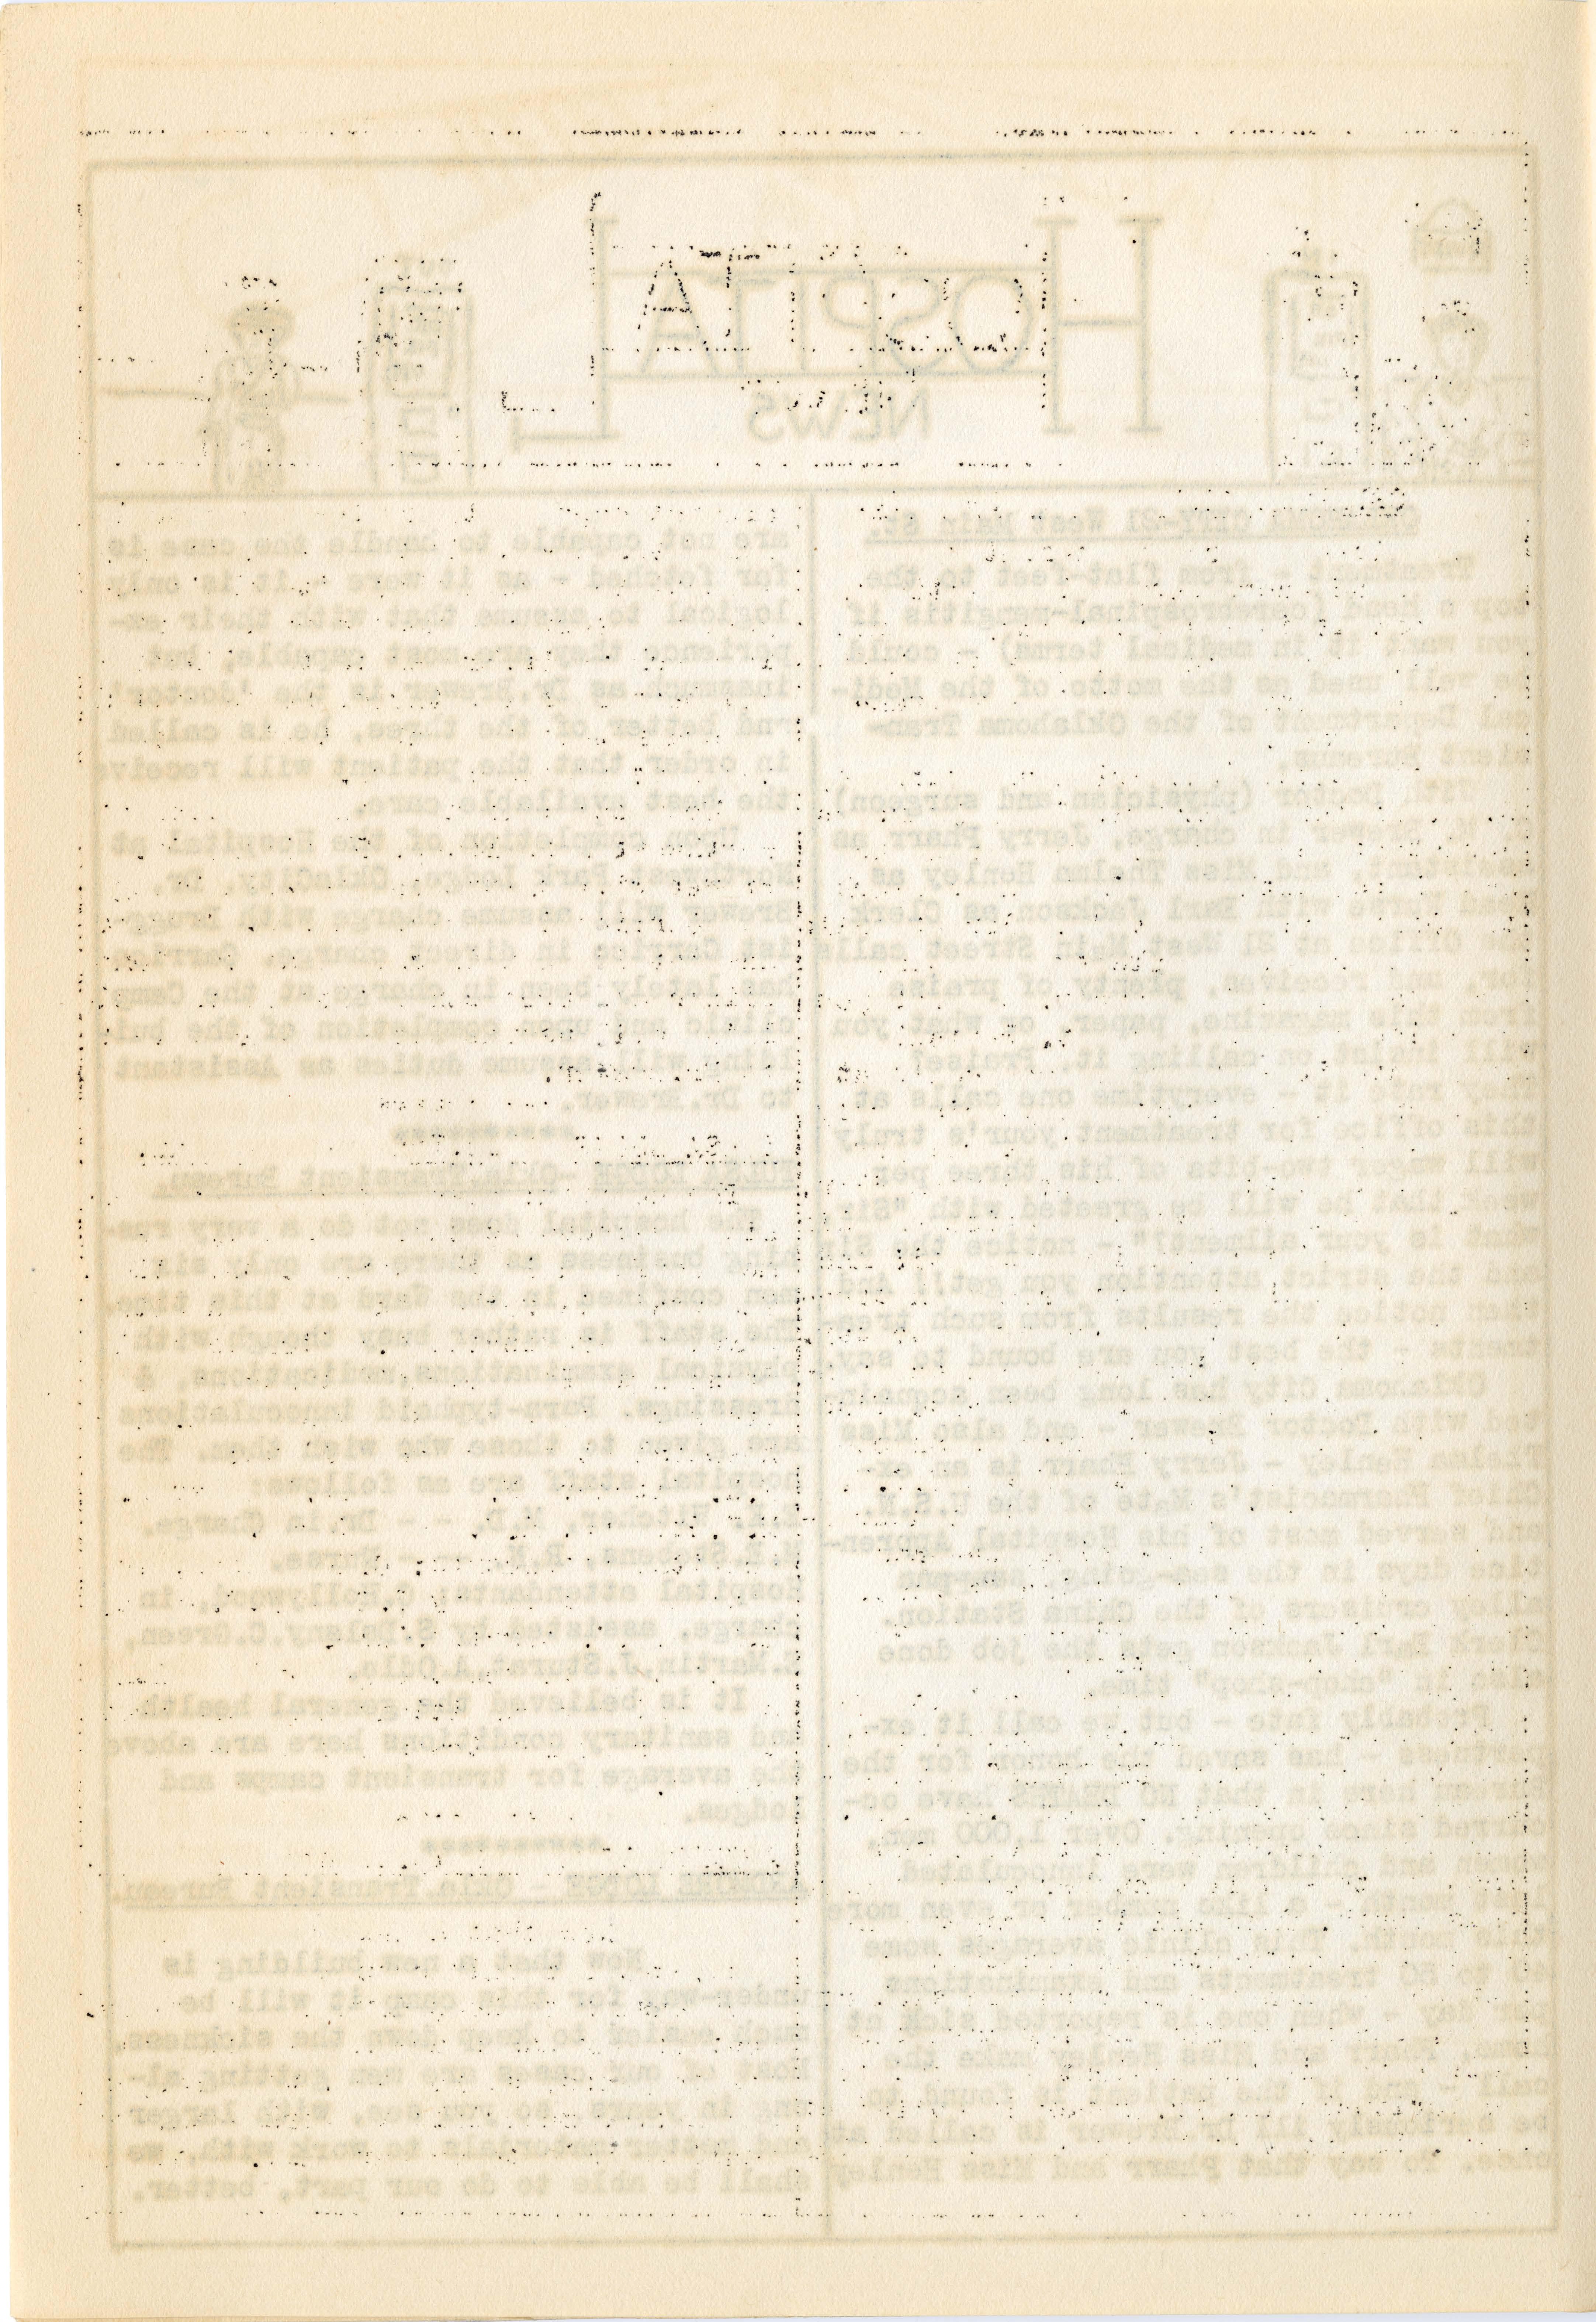 HOSPITAL
NEWS
Oklahoma City-21 West Main St.
Treatment - from flat-feet to the
top o head (cerebrospinal-mengitis if
you want it in medical terms) - could
be well used as the motto of the Medi-
cal Department of the Oklahoma Tran-
sient Bureaus.
With Doctor (physician and surgeon)
Brewer in charge, Jerry Pharr as
assistant, and Miss Thelma Henley as
Earl Jackson as Clerk
the Office at 21 West Main Street calls
for, and receives, plenty of praise
from this magazine, paper, or what you
will insist on calling it. Praise?
they rate it - everytime one calls at
this office for treatment your's truly
will wager two-bits of his three per
week that he will be greeted with "Sir
what is your ailment?" - notice the Sir
and the strict attention you get! And
then notice the results from such treat-
ments - the best you are bound to say.
Oklahoma City has long been acquain-
ted with Doctor Brewer - and also Miss
Thelma Henley - Jerry Pharr is an ex-
Chief Pharmacist's Mate of the U.S.N.
and served most of his Hospital Appren-
tice days in the sea-going,
cruisers of the China Station.
Clerk Earl Jackson gets the job done
in "snap-snap" time.
Probably fate - but we call it ex-
pertness - has saved the honor for the
system here in that NO DEATHS have oc-
curred since opening. Over 1,000 men,
women and children were innoculated
last month - a like number or even more
this month. This clinic averages some
to 80 treatments and examinations
per day - when one is reported sick at
Pharr and Miss Henley make the
call - and if the patient is found to
be seriously ill Dr.Brewer is called at
once. To say that Pharr and Miss Henley
are not capable to handle the case is
far fetched - as it were - it is only
logical to assume that with their ex-
perience they are most capable; but
inasmuch as Dr.Brewer is the 'doctor'
and better of the three, he is called
in order that the patient will receive
the best available care.
Upon completion of the Hospital at
Northwest Park Lodge, OklaCity, Dr.
Brewer will assume charge with Drugg-
ist Carrico in direct charge. Carrico
has lately been in charge at the Camp
clinic and upon completion of the buil-
ding will assume duties as Assistant
to Dr.Brewer.
**********
Okla.Transient Bureau.
The hospital does not do a very rus-
hing business as there are only six
men confined in the Ward at this time
The staff is rather busy though with
physical examinations,medications, &
dressings. Para-typhoid innoculations
are given to those who wish them. The
hospital staff are as follows:
M.D. - - Dr.in Charge.
R.N. - - Nurse.
Hospital attendants; C.Hollywood, in
charge, assisted by C.Green,
Martin,J.Sturat,A.Odle.
It is believed the general health
and sanitary conditions here are above
the average for transient camps and
lodges.
**********
Okla.Transient Bureau.
Now that a new building is
under-way for this camp it will be
much easier to keep down the sickness.
Most of our cases are men getting al-
ong in years, so you see, with larger
and better materials to work with, we
shall be able to do our part, better.